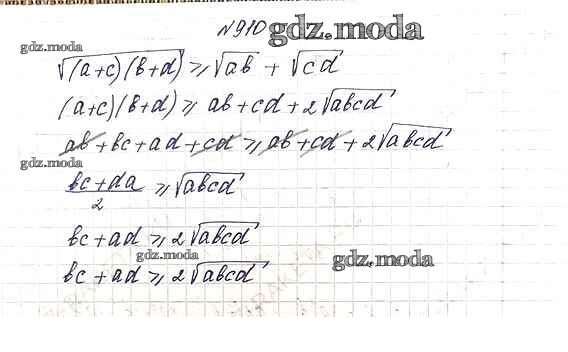 №910 gdz.moda
gdz.moda
√(a+c)(b+d) ⩾ √ab + √cd
(a+c)(b+d) ⩾ ab+cd+2√abcd
ab+bc+ad+cd ⩾ ab+cd+2√abcd
gdz.moda
bc+da/2 ⩾ √abcd
bc+ad ⩾ 2√abcd
gdz.moda gdz.moda
bc+ad ⩾ 2√abcd